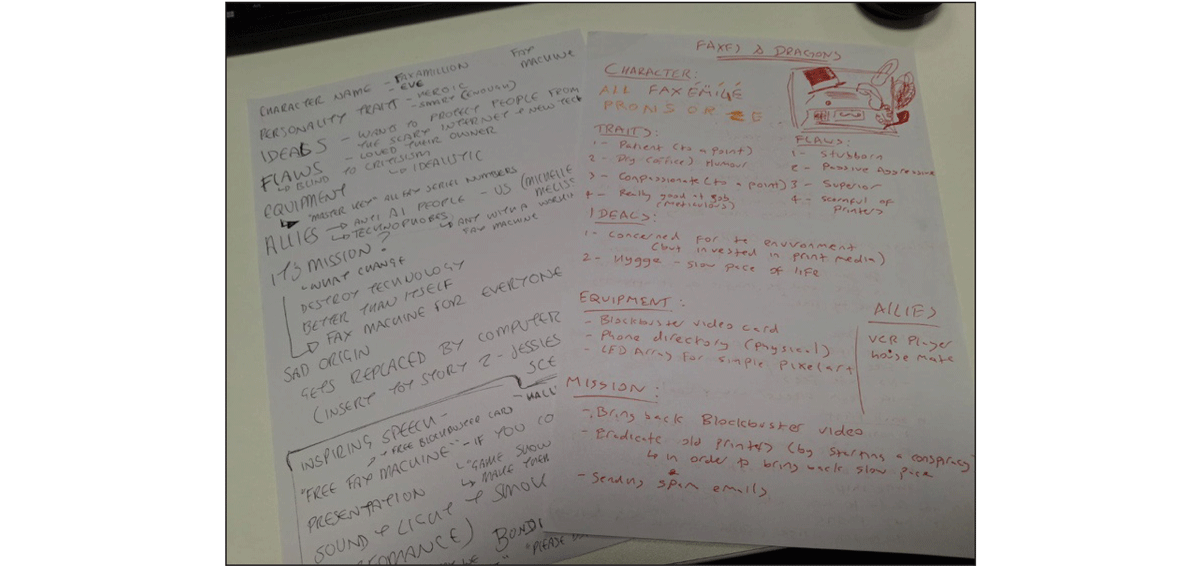 CHARACTER NAME - FAXAMILLION FAX MACHINE
- EVE
PERSONALITY TRAIT - HEROIC
- SMART (ENOUGH)
IDEALS - WANTS TO PROTECT PEOPLE FROM
THE SCARY INTERNET + NEW TECH
FLAWS - LOVED THEIR OWNER
↳ BLIND TO CRITISISM
↳ IDEALISTIC
EQUIPMENT
"MASTER KEY" ALL FAX SERIAL NUMBERS
ALLIES → ANTI AI PEOPLE - US (MICHELLE
↳ TECHNOPHOBES
↳ ANY WITH A
FAX MACHINE
ITS MISSION?
WHAT CHANGE
DESTROY TECHNOLOGY
BETTER THAN ITSELF
FAX MACHINE FOR EVERYONE
SAD ORIGIN
GETS REPLACED BY COMPUTER
(INSERT TOY STORY 2 - JESSIES
INSPIRING SPEECH -
FREE BLOCKBUSTER CARD
"FREE FAX MACHINE" - IF YOU
PRESENTATION
↳ "GAME SHOW
↳ MAKE THEM
SOUND + LIGHT + SMOK
BONDI
"PLEASE
FAXES & DRAGONS
CHARACTER:
ALL FAXEMILE
TRAITS:
1 - Patient (to a point)
2 - Dry (office) Humour
3 - Compassionate (to a point)
4 - Really good at job
(meticulous)
FLAWS:
1 - Stubborn
2 - Passive Aggressive
3 - Superior
4 - Scornful of
Printers
IDEALS:
1 - Concerned for te environment
(but invested in print media)
2 - Hygge - slow pace of life
EQUIPMENT:
- Blockbuster video card
- Phone directory (physical)
- LED Array for simple pixelart
ALLIES
VCR Player
house mate
MISSION:
- Bring back Blockbuster video
- Eradicate old printers (by starting a conspiracy)
↳ in order to bring back slow pace
- Sending spam emails